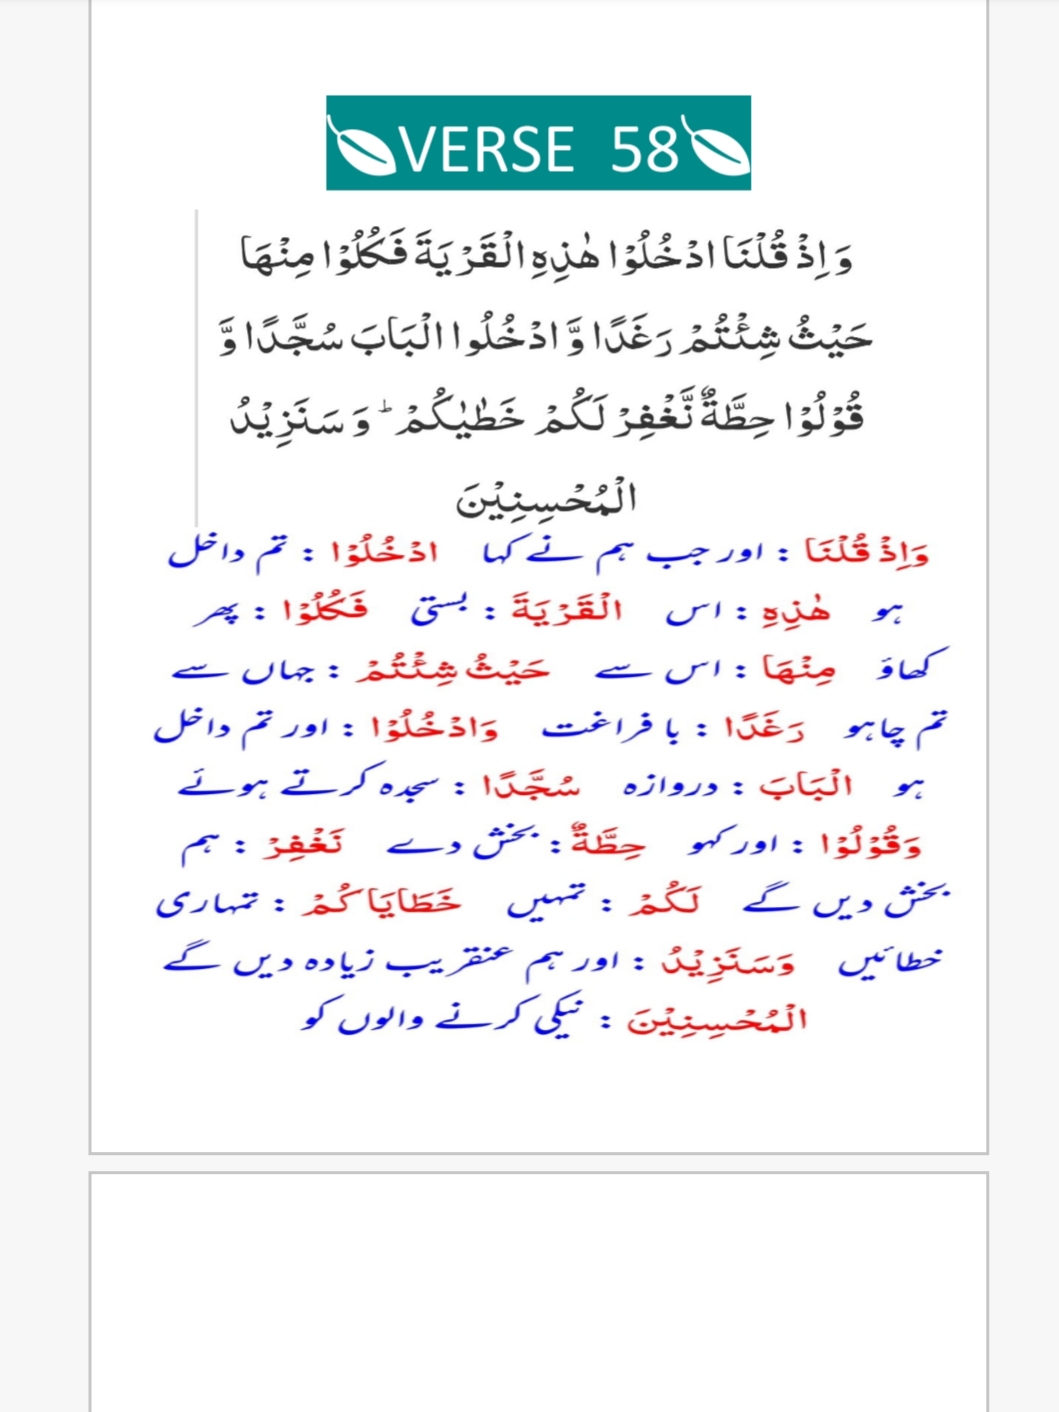 VERSE 58
وَ اِذْ قُلْنَا ادْخُلُوْا هٰذِهِ الْقَرْیَةَ فَكُلُوْا مِنْهَا
حَیْثُ شِئْتُمْ رَغَدًا وَّ ادْخُلُوا الْبَابَ سُجَّدًا وَّ
قُوْلُوْا حِطَّةٌ نَّغْفِرْ لَكُمْ خَطٰیٰكُمْؕ وَ سَنَزِیْدُ
الْمُحْسِنِیْنَ
وَاِذْ قُلْنَا : اور جب ہم نے کہا ادْخُلُوْا : تم داخل
ہو هٰذِهِ : اس الْقَرْيَةَ : بستی فَكُلُوْا : پھر
کھاؤ مِنْهَا : اس سے حَيْثُ شِئْتُمْ : جہاں سے
تم چاہو رَغَدًا : با فراغت وَادْخُلُوْا : اور تم داخل
ہو الْبَابَ : دروازہ سُجَّدًا : سجدہ کرتے ہوئے
وَقُوْلُوْا : اور کہو حِطَّةٌ : بخش دے نَغْفِرْ : ہم
بخش دیں گے لَكُمْ : تمہیں خَطَايَا كُمْ : تمہاری
خطائیں وَسَنَزِيْدُ : اور ہم عنقریب زیادہ دیں گے
الْمُحْسِنِيْنَ : نیکی کرنے والوں کو